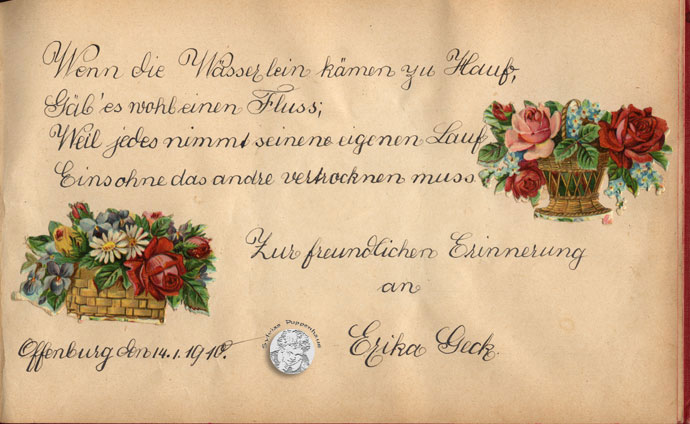 Wenn die Wässerlein kämen zu Hauf,
Gäb' es wohl einen Fluss;
Weil jedes nimmt seinene eigenen Lauf
Eins ohne das andre vertrocknen muss
Zur freundlichen Erinnerung
an
Erika Geck.
Offenburg den 14.1.1910.
Sylvias Puppenhaus